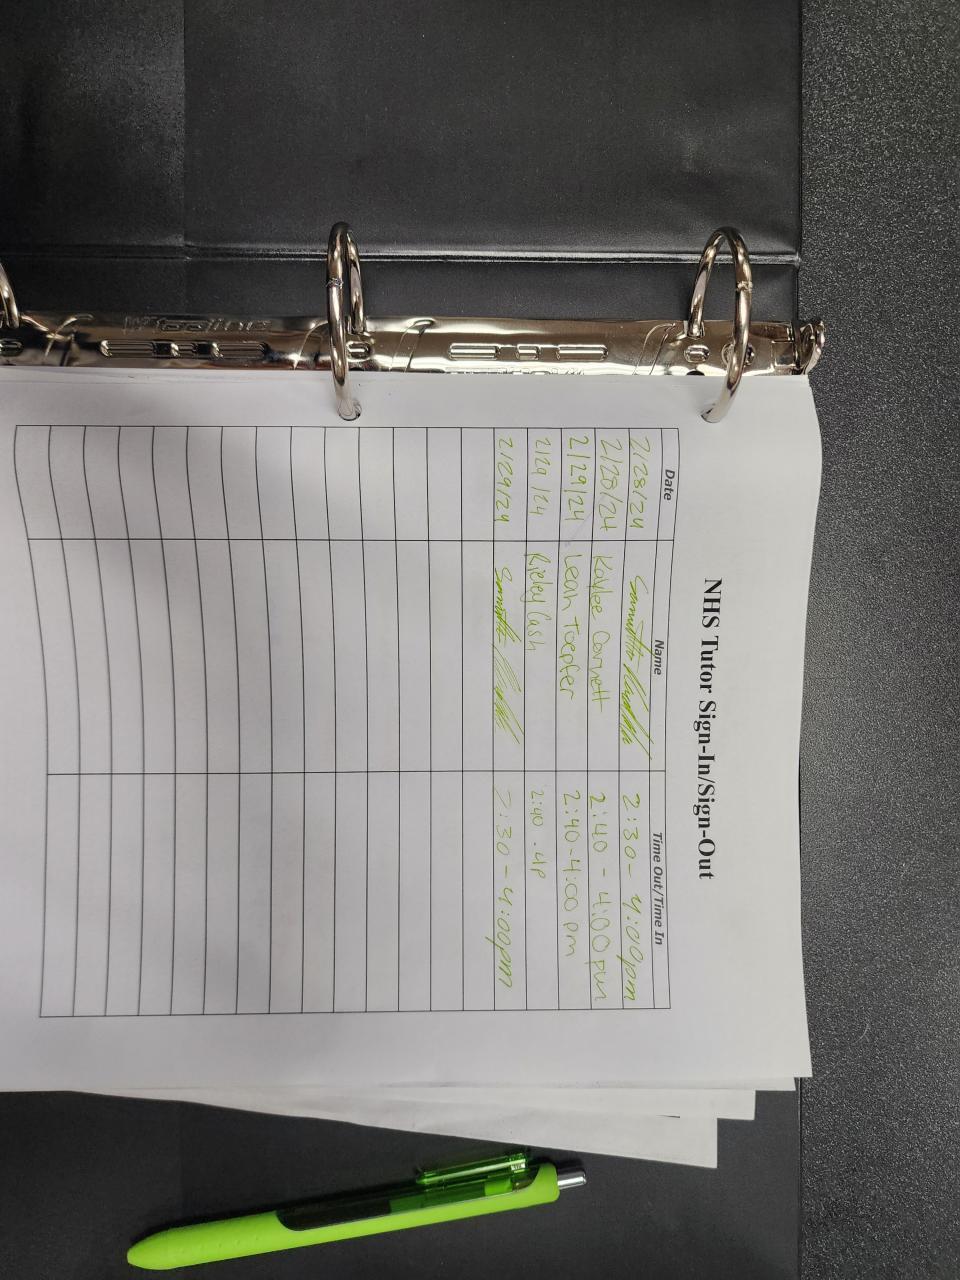 NHS Tutor Sign-In/Sign-Out
Date Name Time Out/Time In
2/28/24 2:30 - 4:00pm
2/28/24 Kaylee Cornett 2:40 - 4:00pm
2/29/24 Leah Toepfer 2:40-4:00pm
2/29/24 Rieley Cash 2:40 - 4P
2/29/24 2:30 - 4:00pm